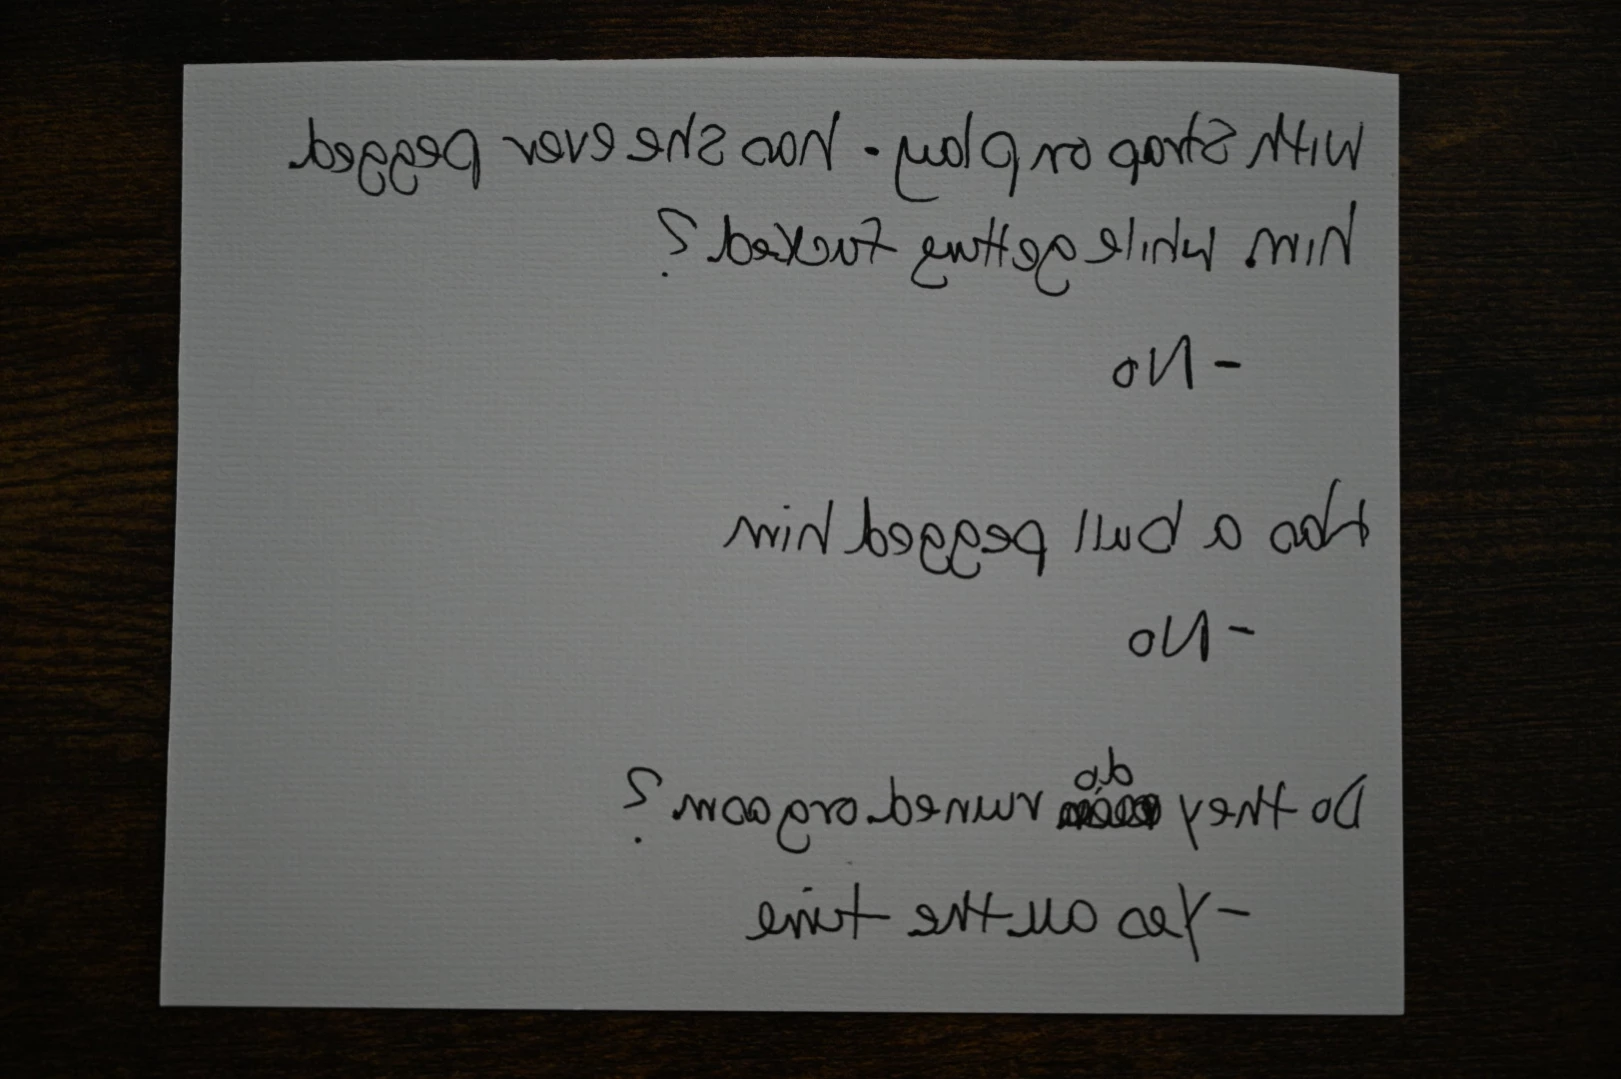 With strap on play - has she ever pegged
him while getting fucked?
- No
Has a bull pegged him
- No
do
Do they ruined orgasm?
- Yes all the time